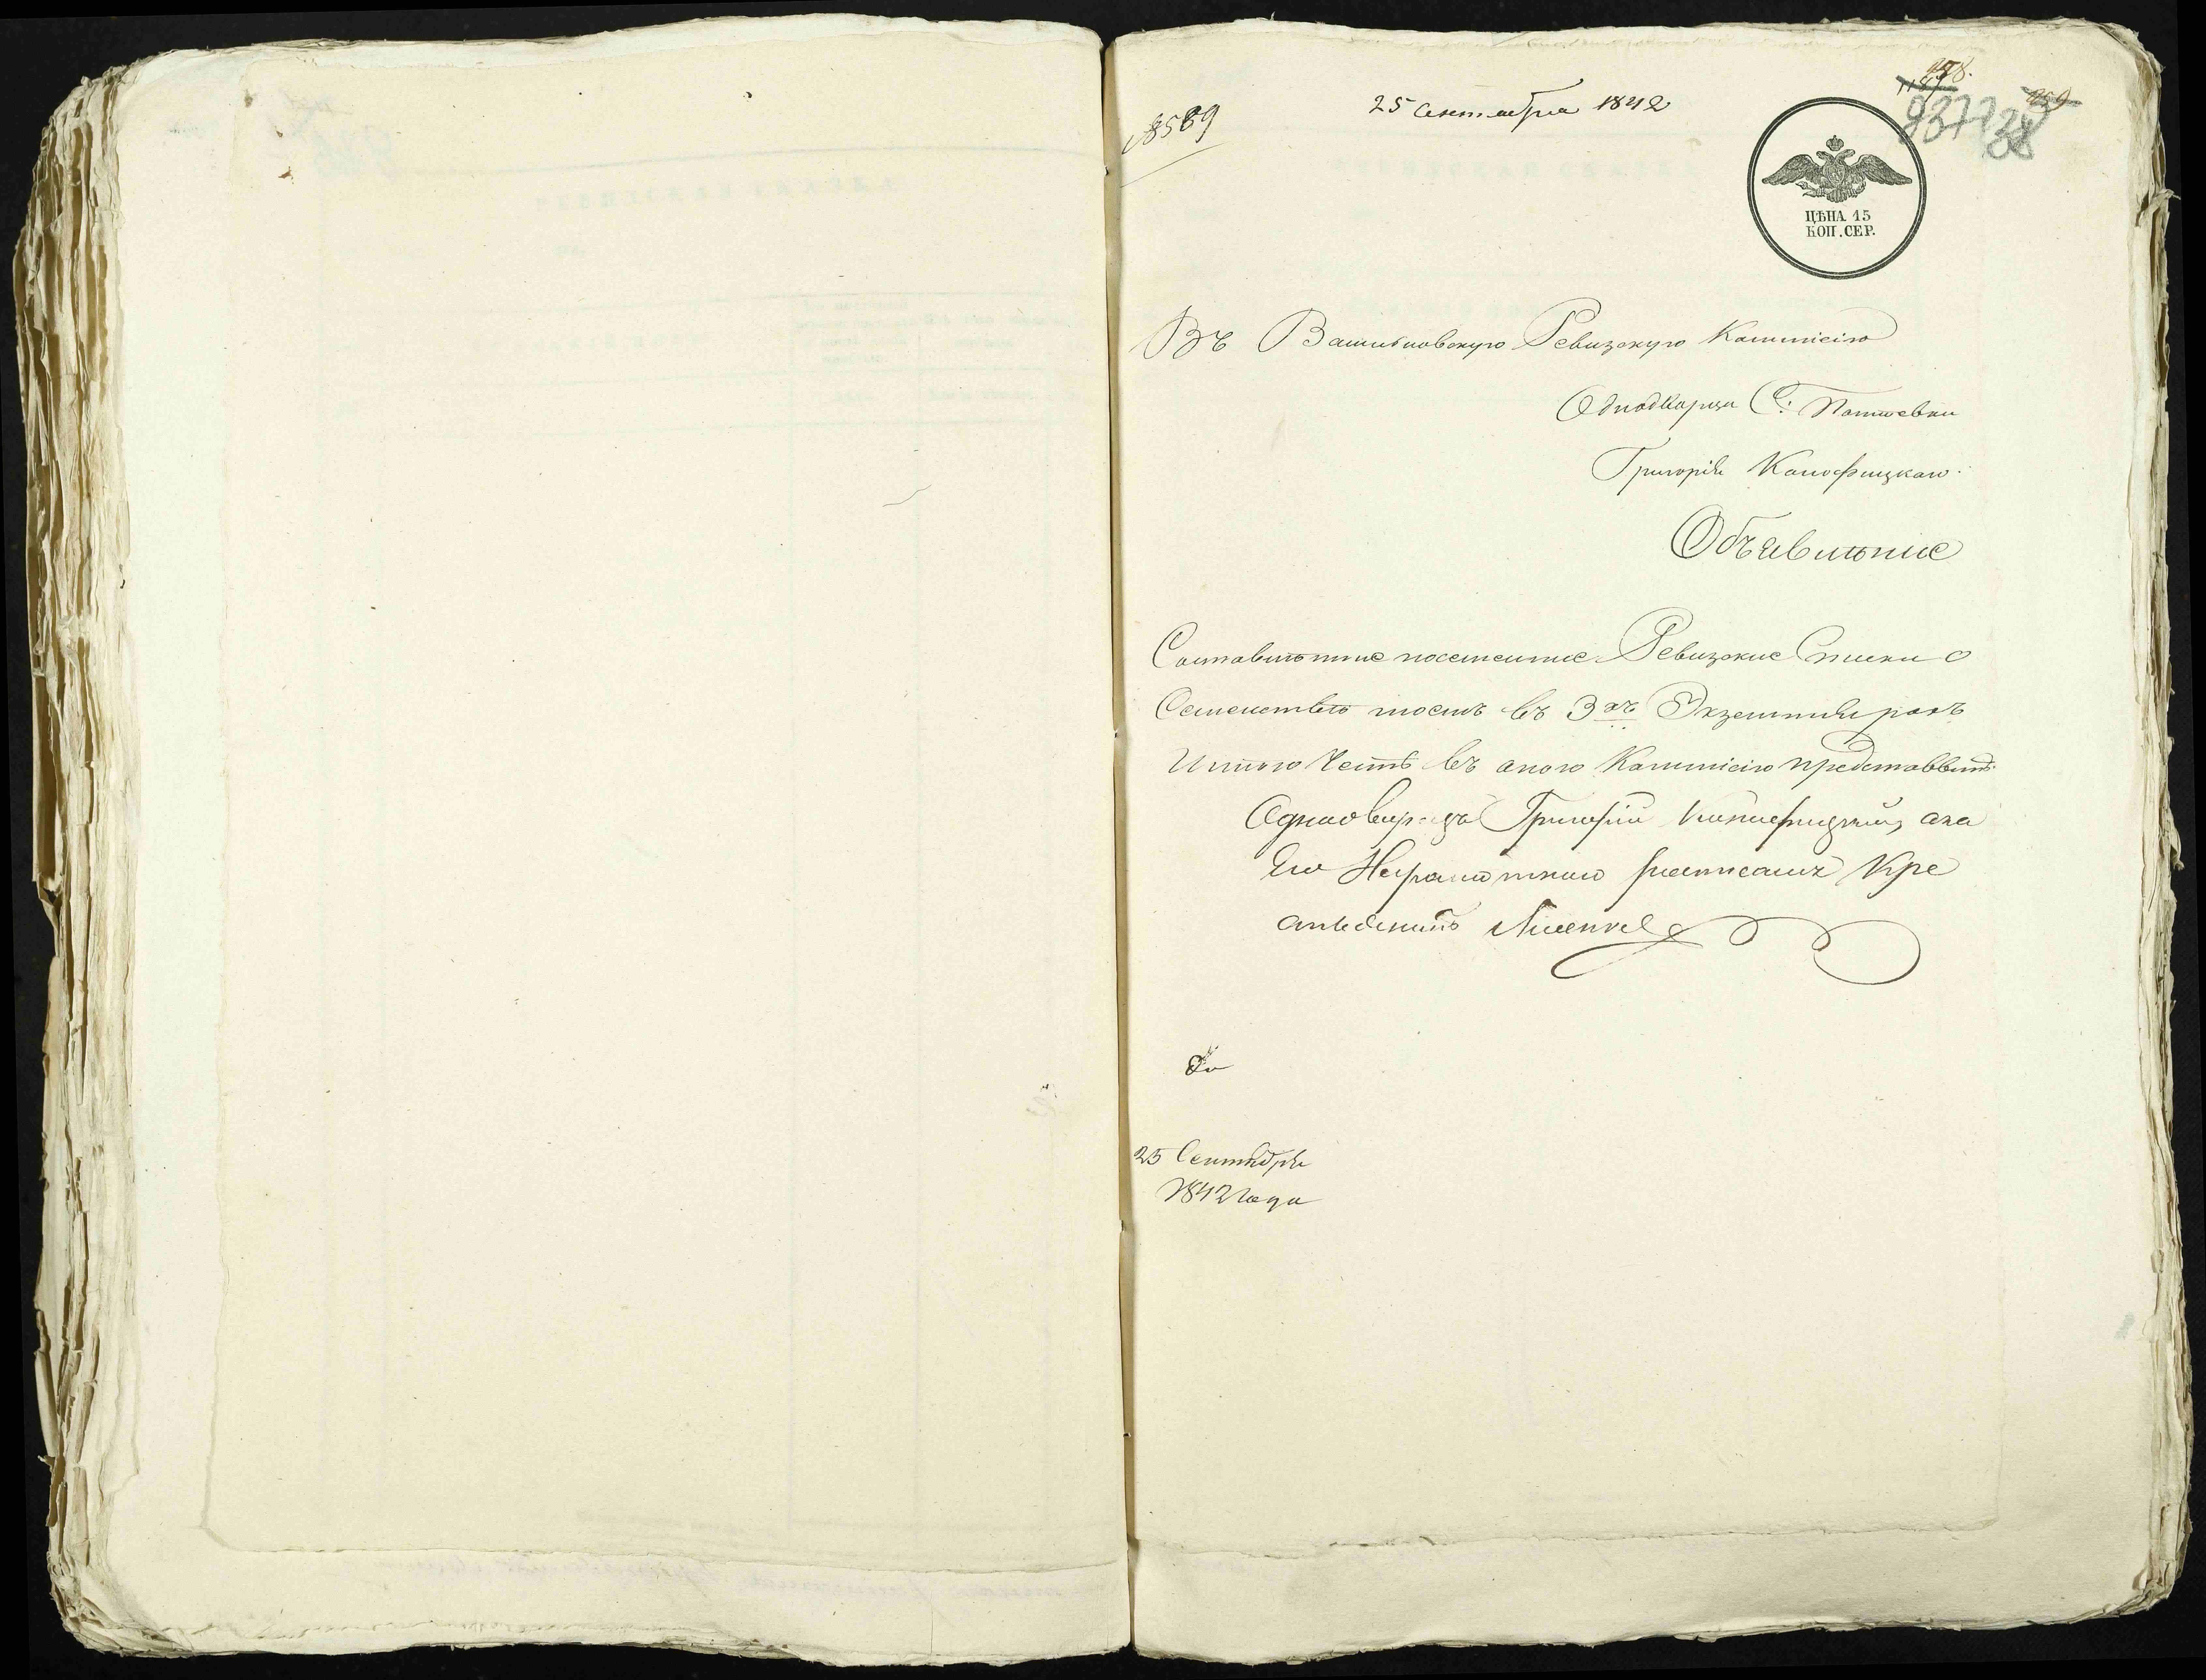 25 Сентября 1842
№8589
ЦѢНА 15
КОП. СЕР.
Въ Васильковскую Ревизскую Коммисію
Однодворца С:
Григорія Конофицкаго
Объявленіе
Составленные посемейные Ревизкие Списки о
Семействе моемъ въ 3хъ Экземплярахъ
имѣю честь въ оною Коммисію представить
Однодворецъ Григорій Конофицкий, а за
Его Неграмотного росписался
25 Сентября
1842 года